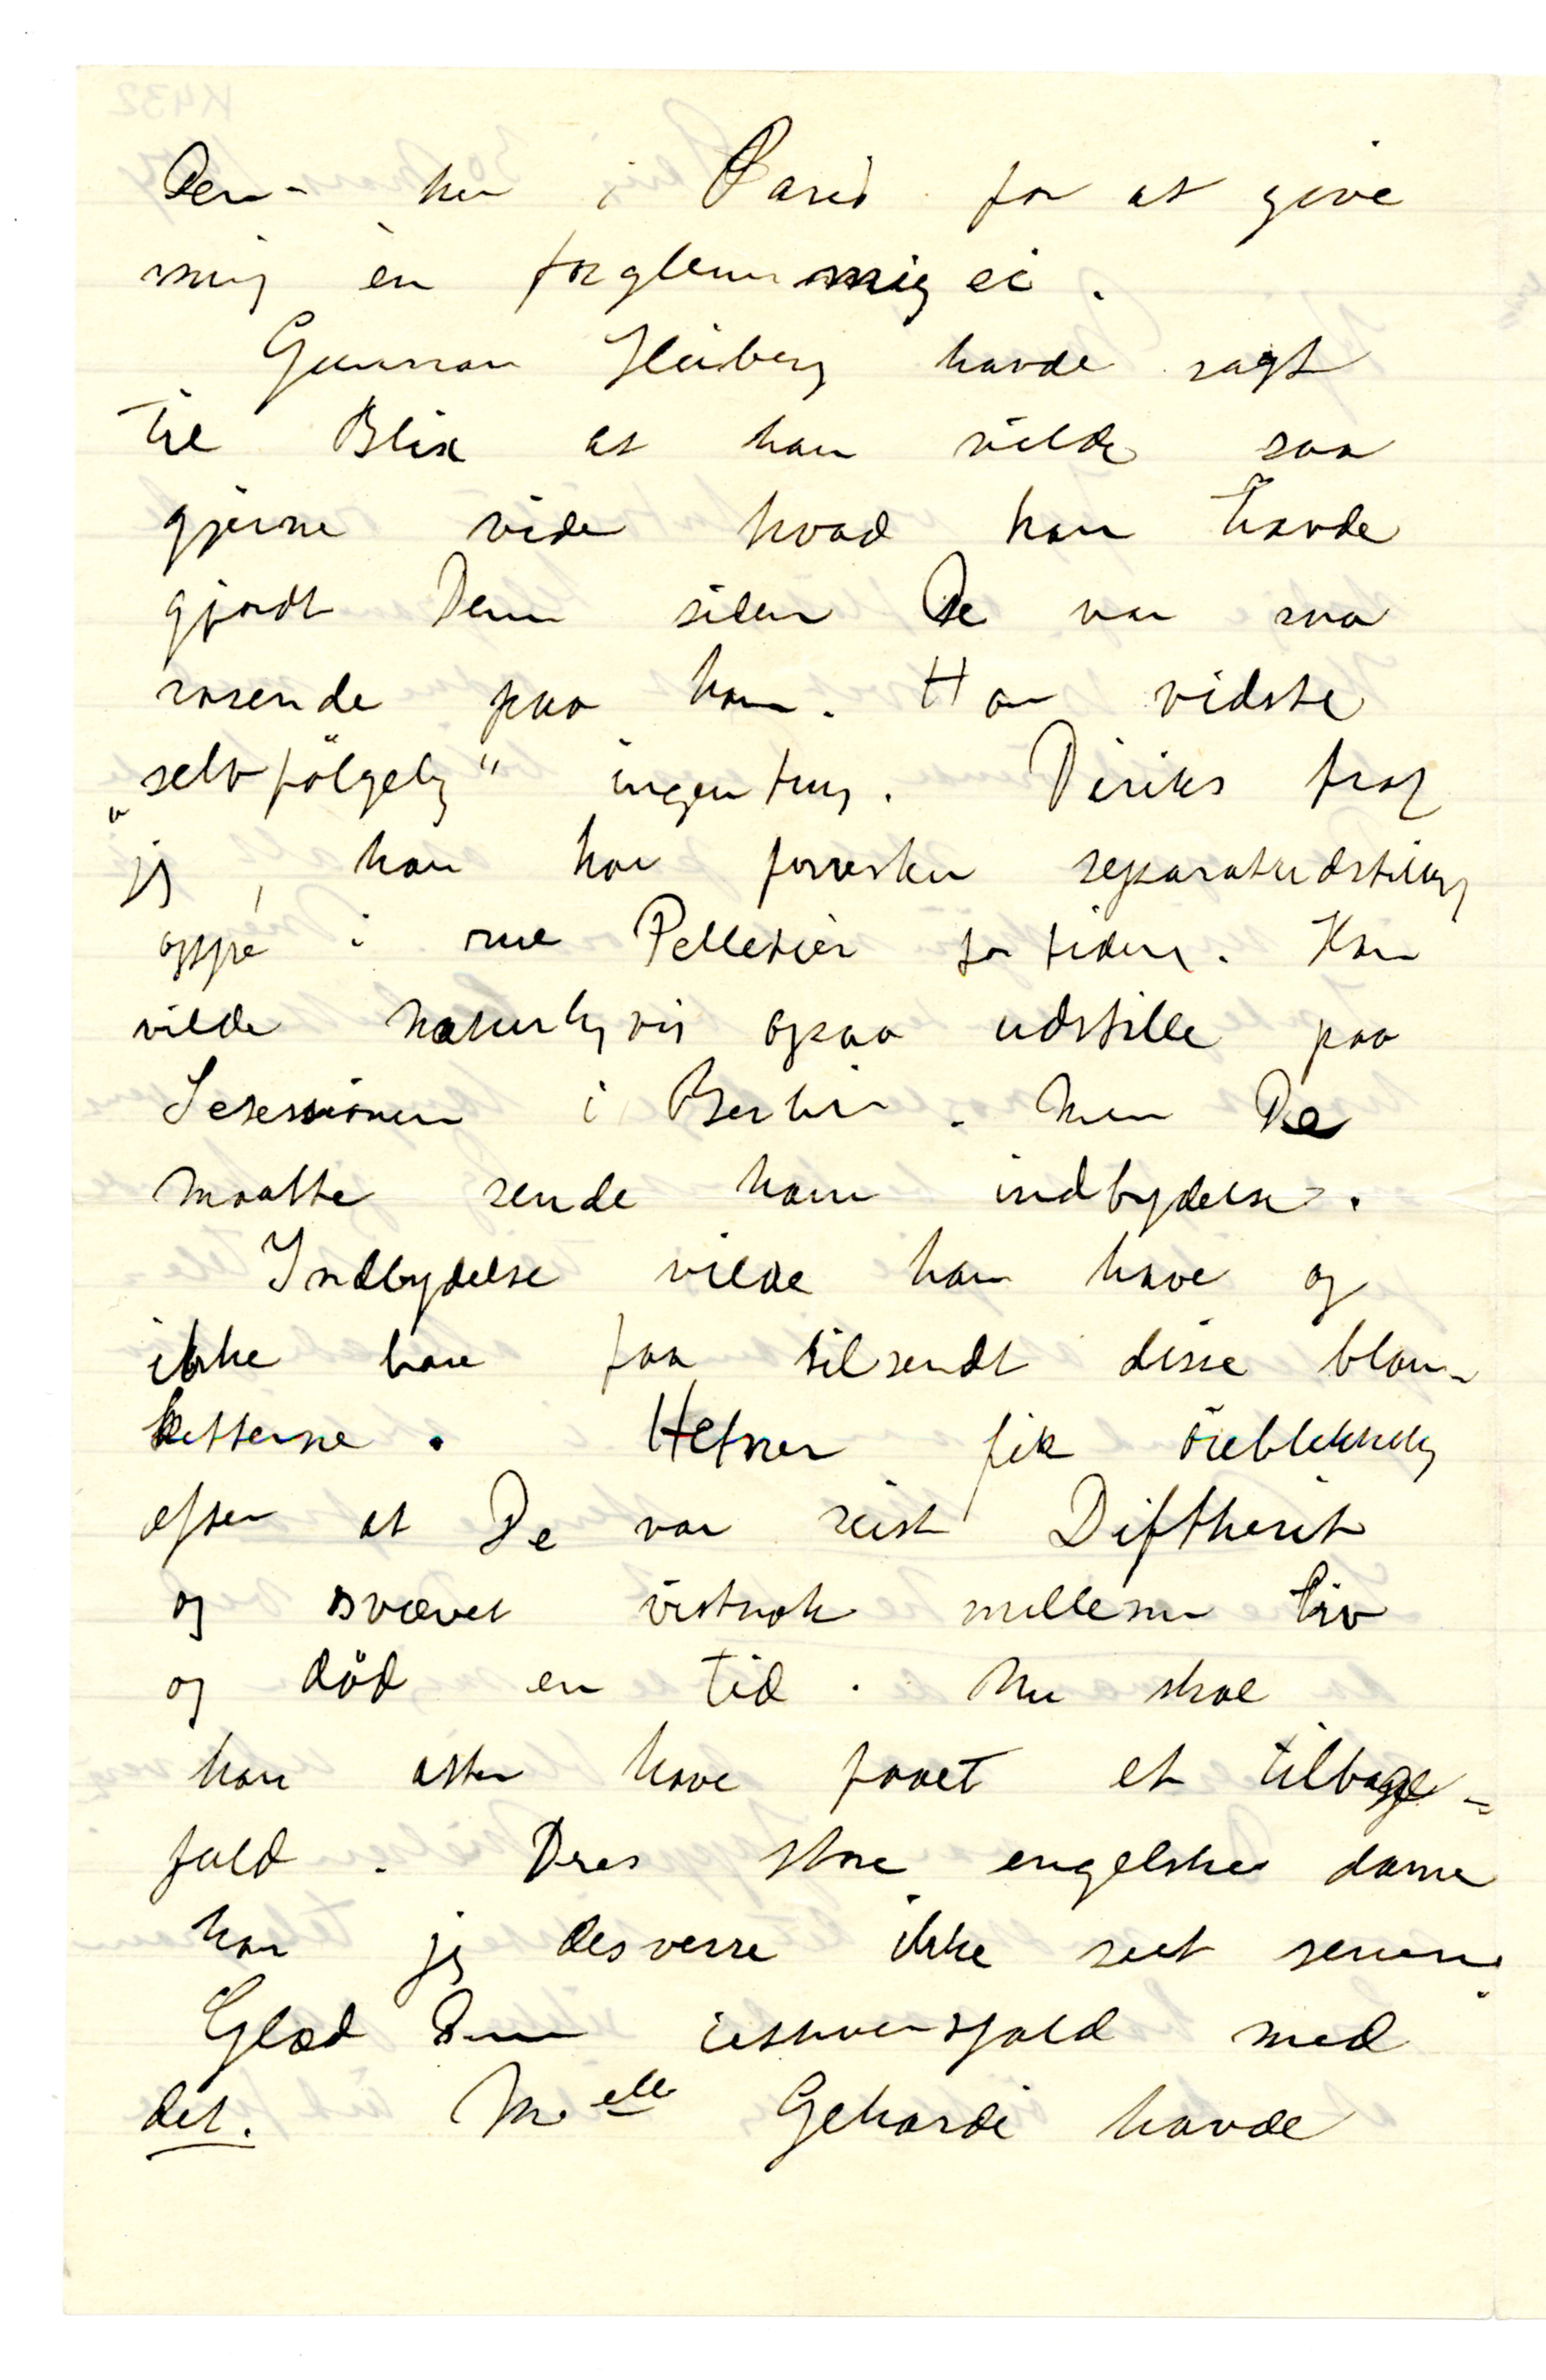 Dem her i Paris for at give
mig en forglem mig ei.
Gunnar Heiberg havde sagt
til Blix at han vilde saa
gjerne vide hvad han havde
gjordt Dem siden De var saa
rasende paa ham. Han vidste
„selvfölgelig" ingenting. Diriks traf
jeg, han har forresten separatudstilling
oppe i rue Pelletier for tiden. Han
vilde naturligvis ogsaa udstille paa
Secessionen i Berlin. Men De
maatte sende ham indbydelse.
Indbydelse vilde han have og
ikke bare faa tilsendt disse blan-
ketterne. Hefner fik öieblikkelig
efter at De var reist Diftherit
og svævet vistnok mellem liv
og död en tid. Nu skal
han atter have faaet et tilbage-
fald. Deres store engelske dame
har jeg desverre ikke seet senere.
Glæd Dem ialhvertfald med
det. Melle Gehardi havde
K432